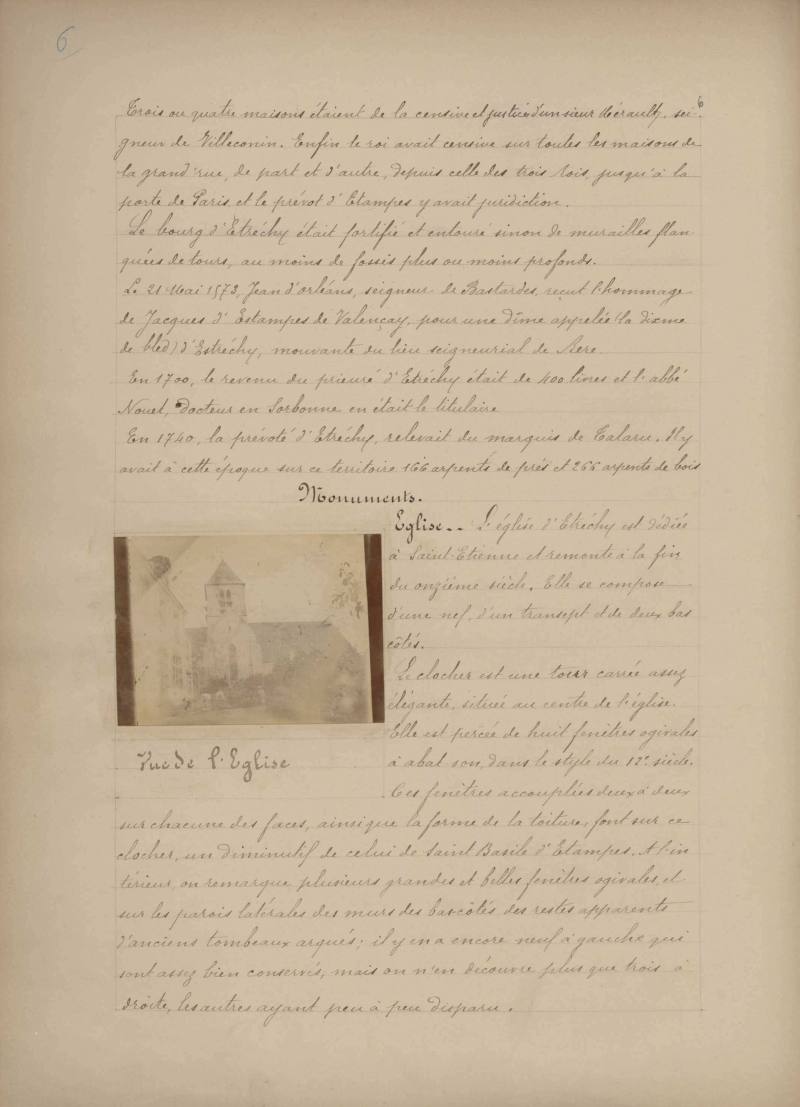 6
6
Trois ou quatre maisons étaient de la censive et justice d'un sieur Hérault, sei-
gneur de Villeconin. Enfin le roi avait censive sur toutes les maisons de
la grand'rue, de part et d'autre, depuis celle des trois Rois, jusqu'à la
porte de Paris et le prévot d'Etampes y avait juridiction.
Le bourg d'Etréchy était fortifié et entouré sinon de murailles flan
quées de tours, au moins de fossés plus ou moins profonds.
Le 21 Mai 1573, Jean d'orléans, seigneur de Bastardes, reçut l'hommage
de Jacques d'Estampes de Valençay, pour une dîme appelée (la dixme
de bled) d'Estréchy, mouvante du lieu seigneurial de
En 1700, le revenu du prieuré d'Etréchy était de 400 livres et l'abbé
Nouet, docteur en Sorbonne en était le titulaire
En 1740, la prévoté d'Etréchy, relevait du marquis de Talaru. Il y
avait à cette époque sur ce territoire 166 arpents de prés et 266 arpents de bois
Monuments.
Eglise.-- L'église d'Etréchy est dédiée
à Saint-Etienne et remonte à la fin
du onzième siècle. Elle se compose
d'une nef, d'un transept et de deux bas
côtés.
Le clocher est une tour carrée assez
élégante, située au centre de l'église.
Elle est percée de huit fenêtres ogivales
à abat son, dans le style du 12e siècle.
Ces fenêtres accouplées deux à deux
Vue de l'Eglise
sur chacune des faces, ainsi que la forme de la toiture, font sur ce
clocher, un diminutif de celui de Saint Basile d'Etampes. A l'in
térieur, on remarque plusieurs grandes et belles fenêtres ogivales, et
sur les parois latérales des murs des bas côtés des restes apparents
d'anciens tombeaux arqués; il y en a encore neuf à gauche qui
sont assez bien conservés, mais on n'en découvre plus que trois à
droite, les autres ayant peu à peu disparu.